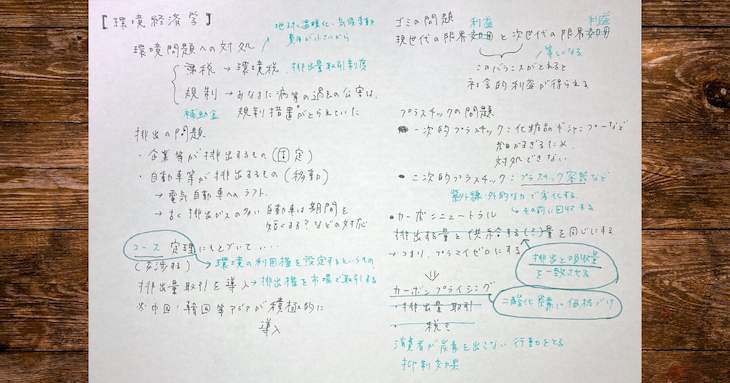 [環境経済学]
地球温暖化、気候変動
環境問題への対処
課税 → 環境税、排出量取引制度
規制 → 水俣病等の過去の公害は、
補助金 規制措置がとられていた
排出の問題
・企業等が排出するもの(固定)
・自動車等が排出するもの(移動)
→ 電気自動車へのシフト
→ 古く排出ガスの 自動車は期間を
短くする?などの対応
コース定理にもとづいて...
(交渉する) → 環境の利用権を設定するというもの
排出量取引を導入 → 排出権を市場で取引する
※中国・韓国等アジアが積極的に
導入
ゴミの問題 利益 利益
現世代の限界効用と次世代の限界効用
等しくなる
このバランスがとれると
社会的利益が得られる
プラスチックの問題
・一次的プラスチック:化粧品やシャンプーなど
細かすぎるため
対処できない
・二次的プラスチック:プラスチック容器など
紫外線・外的な力で劣化する
→ その前に回収する
・カーボンニュートラル
排出する量と供給する(?)量を同じにする
→ つまり、プラマイゼロにする
排出と吸収量
を一致させる
⇓
カーボンプライシング
・排出量取引
二酸化炭素に価格づけ
・税で
消費者が炭素を出さない行動をとる
抑制効果